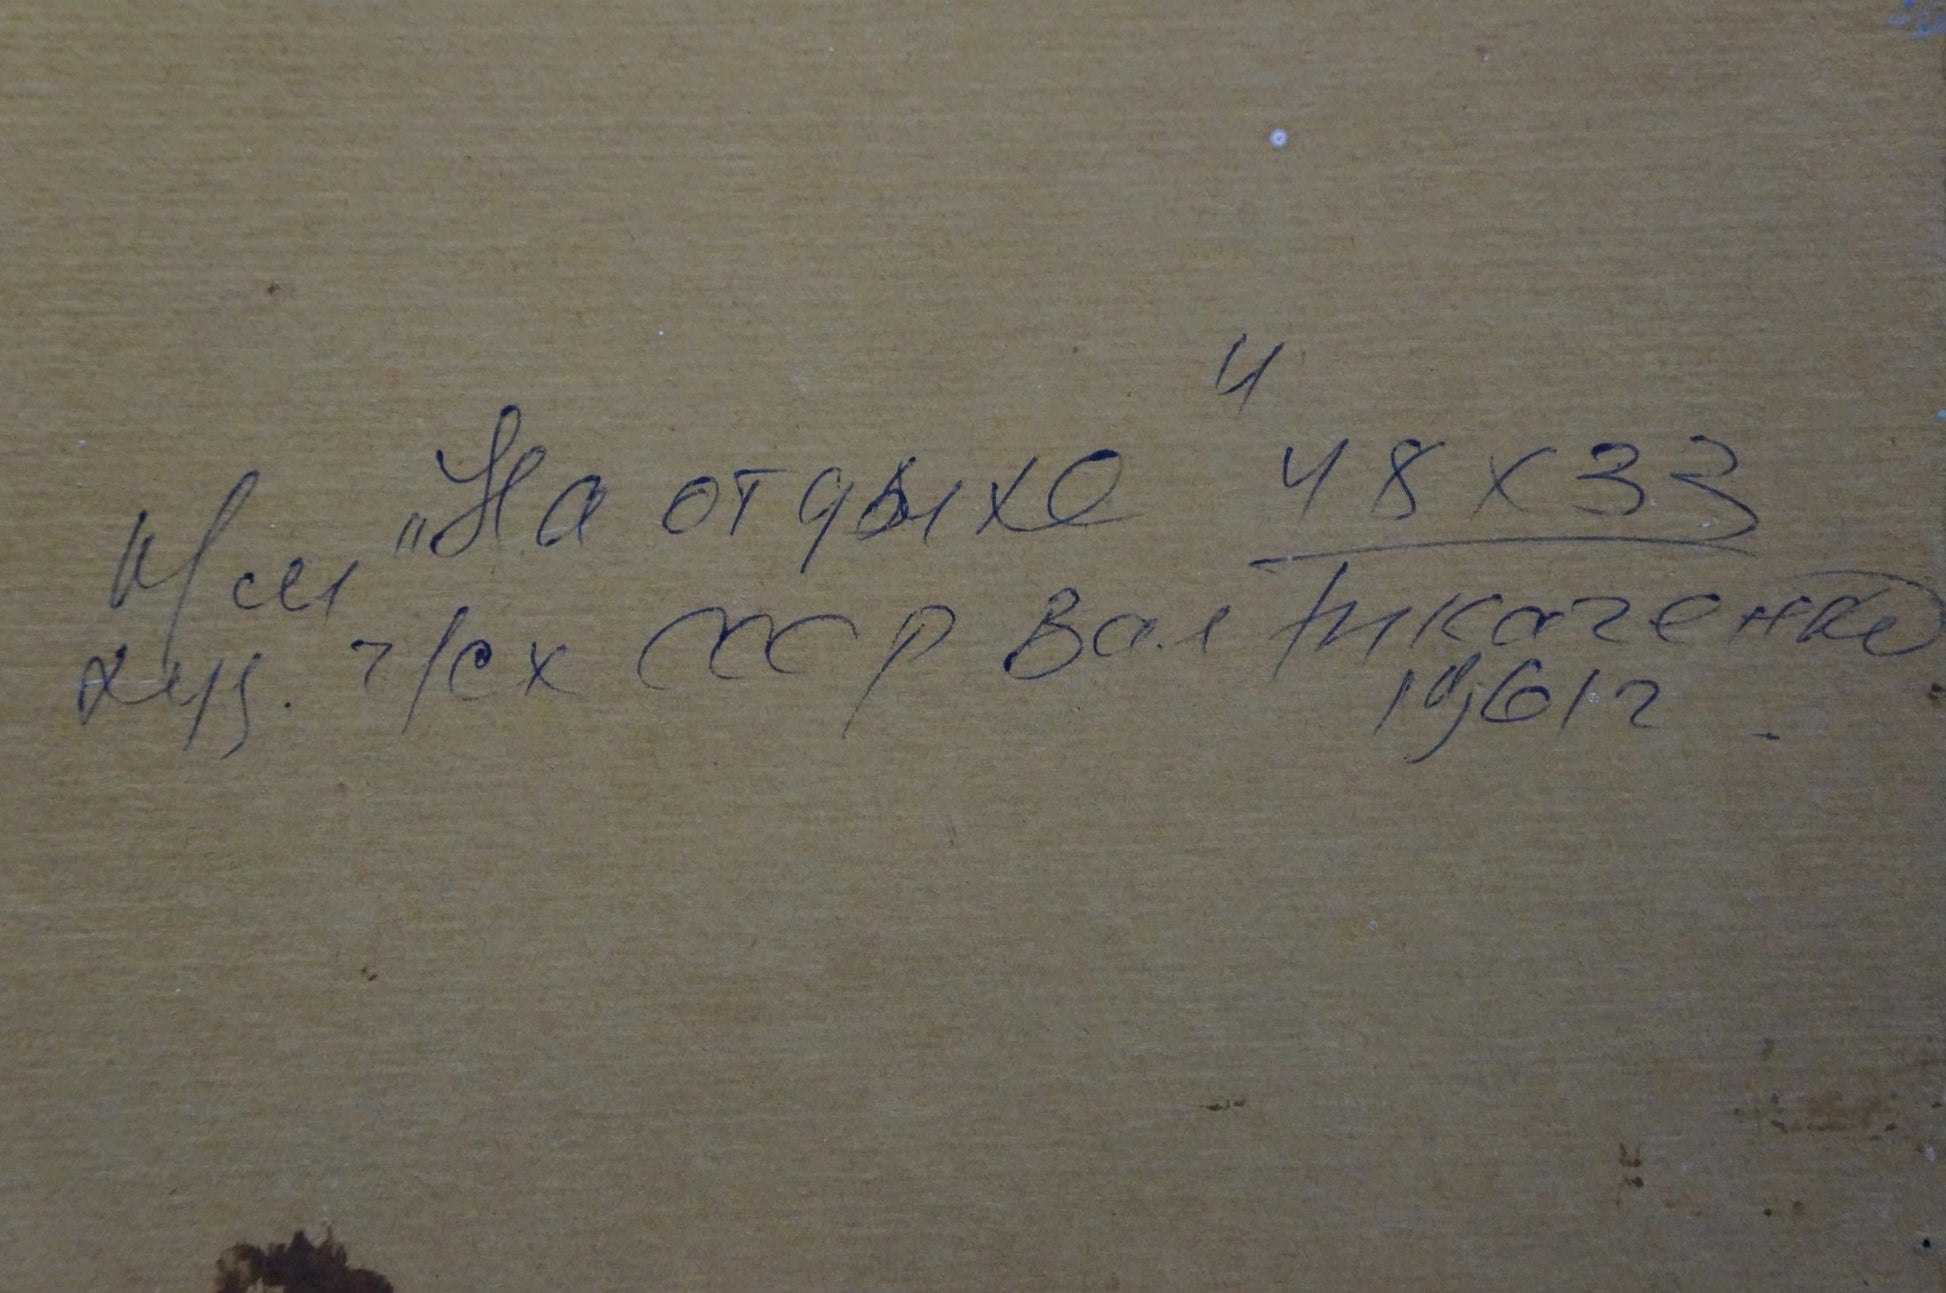 „На отдыхе" 48х33
худ. ч/сх СССР Вал Ткаченко
1961г.